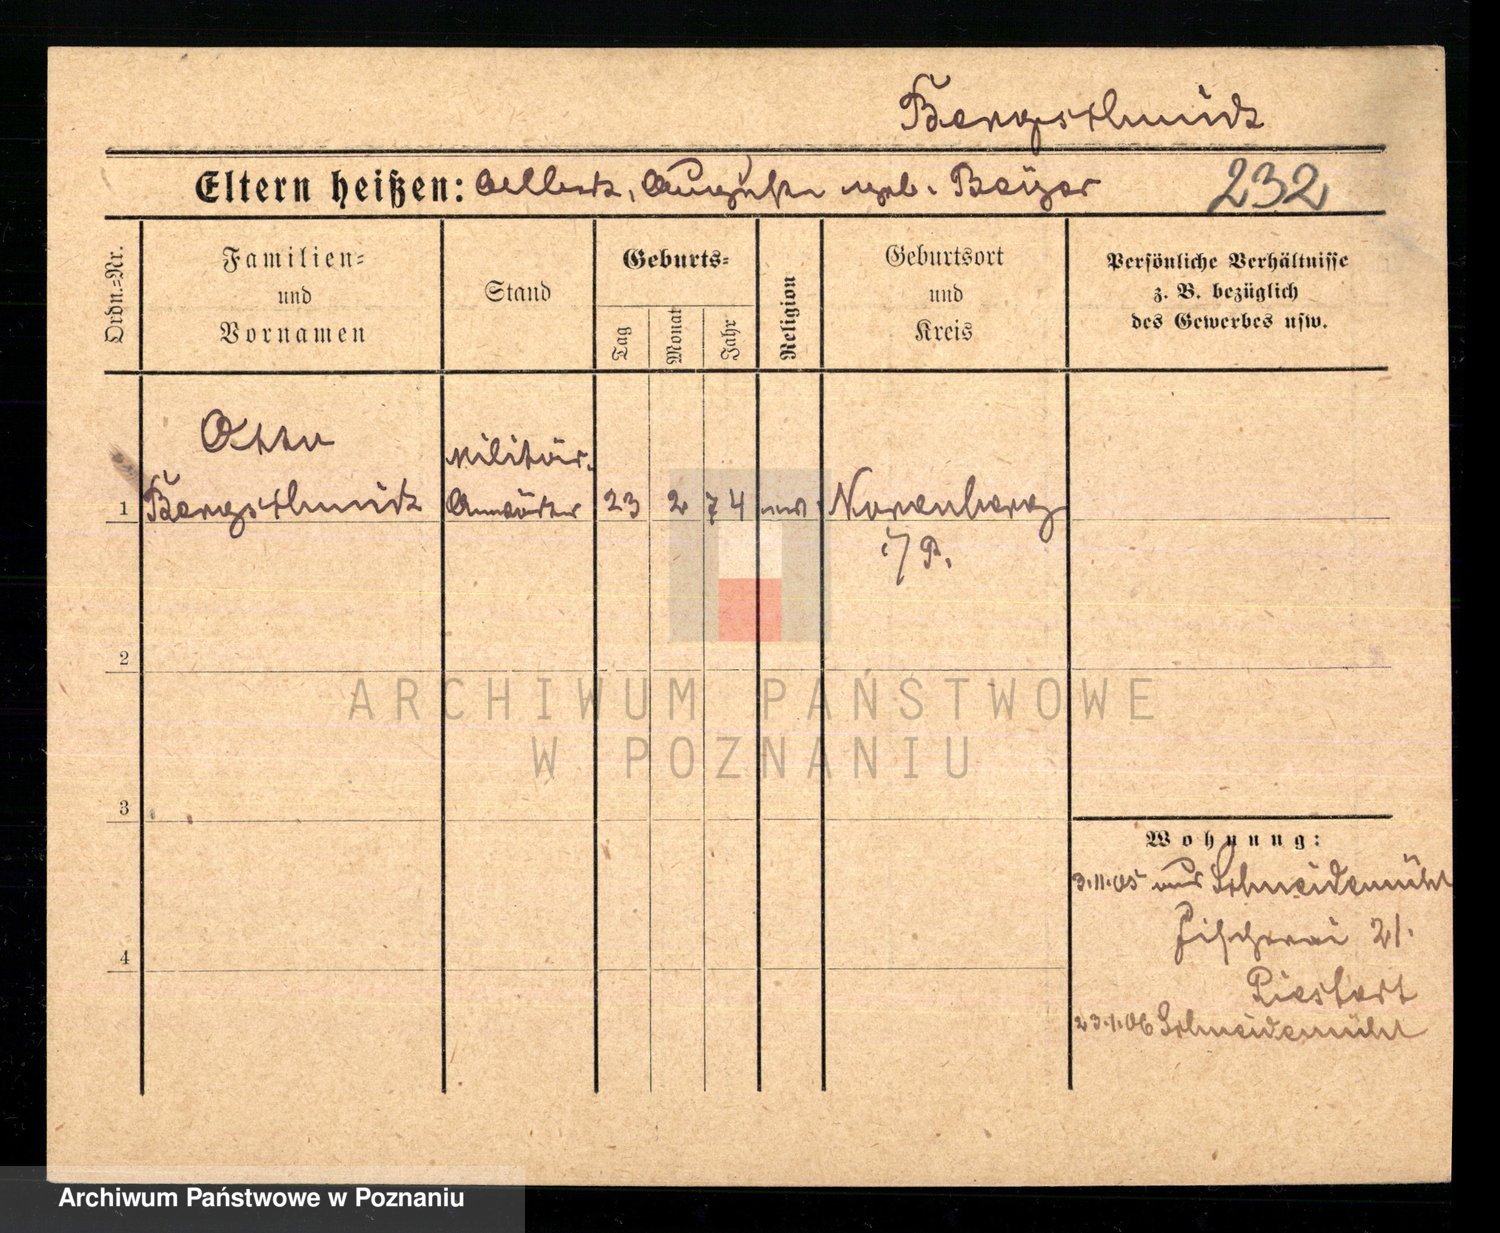 Bergschmidt
Eltern heißen: Albert, Auguste geb. Beyer 232
Ordn.-Nr.
Familien-
und
Vornamen
Stand
Geburts-
Tag
Monat
Jahr
Religion
Geburtsort
und
Kreis
Persönliche Verhältnisse
z. B. bezüglich
des Gewerbes usw.
Otto
Militär-
1 Bergschmidt Anwärter 23 2 74 Norenberg
i/P.
2
ARCHIWUM PAŃSTWOWE
W POZNANIU
3
Wohnung:
3.11.05 aus Schneidemühl
Fischerei 21.
4
23.1.06 Schneidemühl
Archiwum Państwowe w Poznaniu